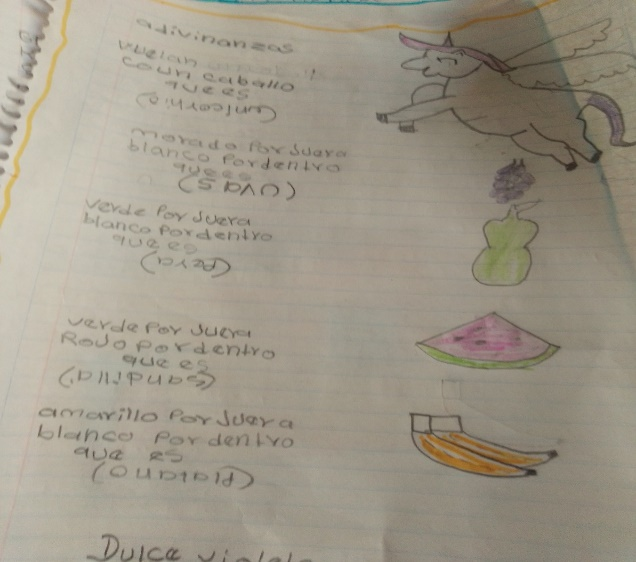 adivinanzas
vuelan
coun caballo
que es
(unicornio)
morado por Juera
blanco Pordentro
que es
(uvas)
verde Por Juera
blanco Pordentro
que es
(Pera)
verde Por Juera
Rojo Por dentro
que es
(sandilla)
amarillo Por Juera
blanco Por dentro
que es
(Platano)
Dulce